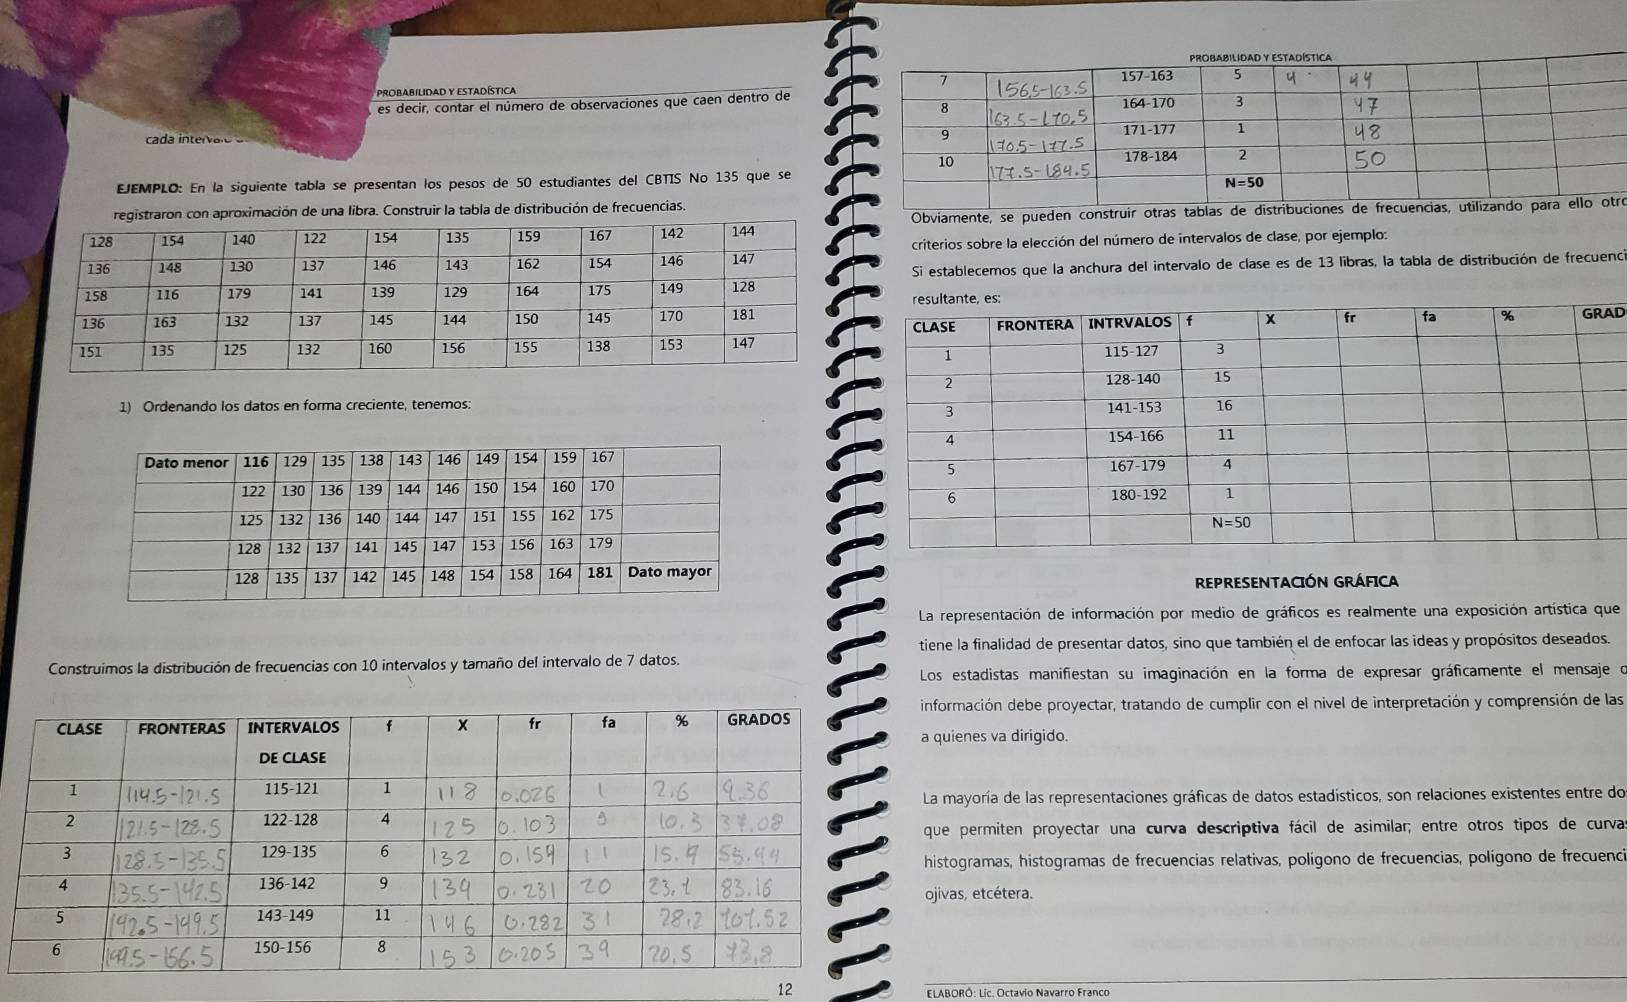 PROBABILIDAD Y ESTADÍSTICA
es decir, contar el número de observaciones que caen dentro de
cada
EJEMPLO: En la siguiente tabla se presentan los pesos de 50 estudiantes del CBTIS No 135 que se
registraron con aproximación de una libra. Construir la tabla de distribución de frecuencias.
128 154 140 122 154 135 159 167 142 144
136 148 130 137 146 143 162 154 146 147
158 116 179 141 139 129 164 175 149 128
136 163 132 137 145 144 150 145 170 181
151 135 125 132 160 156 155 138 153 147
1) Ordenando los datos en forma creciente, tenemos:
Dato menor 116 129 135 138 143 146 149 154 159 167
122 130 136 139 144 146 150 154 160 170
125 132 136 140 144 147 151 155 162 175
128 132 137 141 145 147 153 156 163 179
128 135 137 142 145 148 154 158 164 181 Dato mayor
Construimos la distribución de frecuencias con 10 intervalos y tamaño del intervalo de 7 datos.
CLASE FRONTERAS INTERVALOS f X fr fa % GRADOS
DE CLASE
1 114.5-121.5 115-121 1 118 0.026 1 2.6 9.36
2 121.5-128.5 122-128 4 125 0.103 10.3 37.08
3 128.5-135.5 129-135 6 132 0.154 11 15.4 55.44
4 135.5-142.5 136-142 9 139 0.231 20 23.1 83.16
5 142.5-149.5 143-149 11 146 0.282 31 28.2 101.52
6 149.5-156.5 150-156 8 153 0.205 39 20.5 73.8
12
PROBABILIDAD Y ESTADÍSTICA
7 156.5-163.5 157-163 5 4 44
8 163.5-170.5 164-170 3 47
9 170.5-177.5 171-177 1 48
10 177.5-184.5 178-184 2 50
N=50
Obviamente, se pueden construir otras tablas de distribuciones de frecuencias, utilizando para ello otro
criterios sobre la elección del número de intervalos de clase, por ejemplo:
Si establecemos que la anchura del intervalo de clase es de 13 libras, la tabla de distribución de frecuenci
resultante, es:
CLASE FRONTERA INTRVALOS f X fr fa % GRAD
1 115-127 3
2 128-140 15
3 141-153 16
4 154-166 11
5 167-179 4
6 180-192 1
N=50
REPRESENTACIÓN GRÁFICA
La representación de información por medio de gráficos es realmente una exposición artística que
tiene la finalidad de presentar datos, sino que también el de enfocar las ideas y propósitos deseados.
Los estadistas manifiestan su imaginación en la forma de expresar gráficamente el mensaje o
información debe proyectar, tratando de cumplir con el nivel de interpretación y comprensión de las
a quienes va dirigido.
La mayoría de las representaciones gráficas de datos estadísticos, son relaciones existentes entre do
que permiten proyectar una curva descriptiva fácil de asimilar; entre otros tipos de curva
histogramas, histogramas de frecuencias relativas, polígono de frecuencias, polígono de frecuenci
ojivas, etcétera.
ELABORÓ: Lic. Octavio Navarro Franco